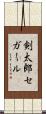 剣太郎セ
ガール